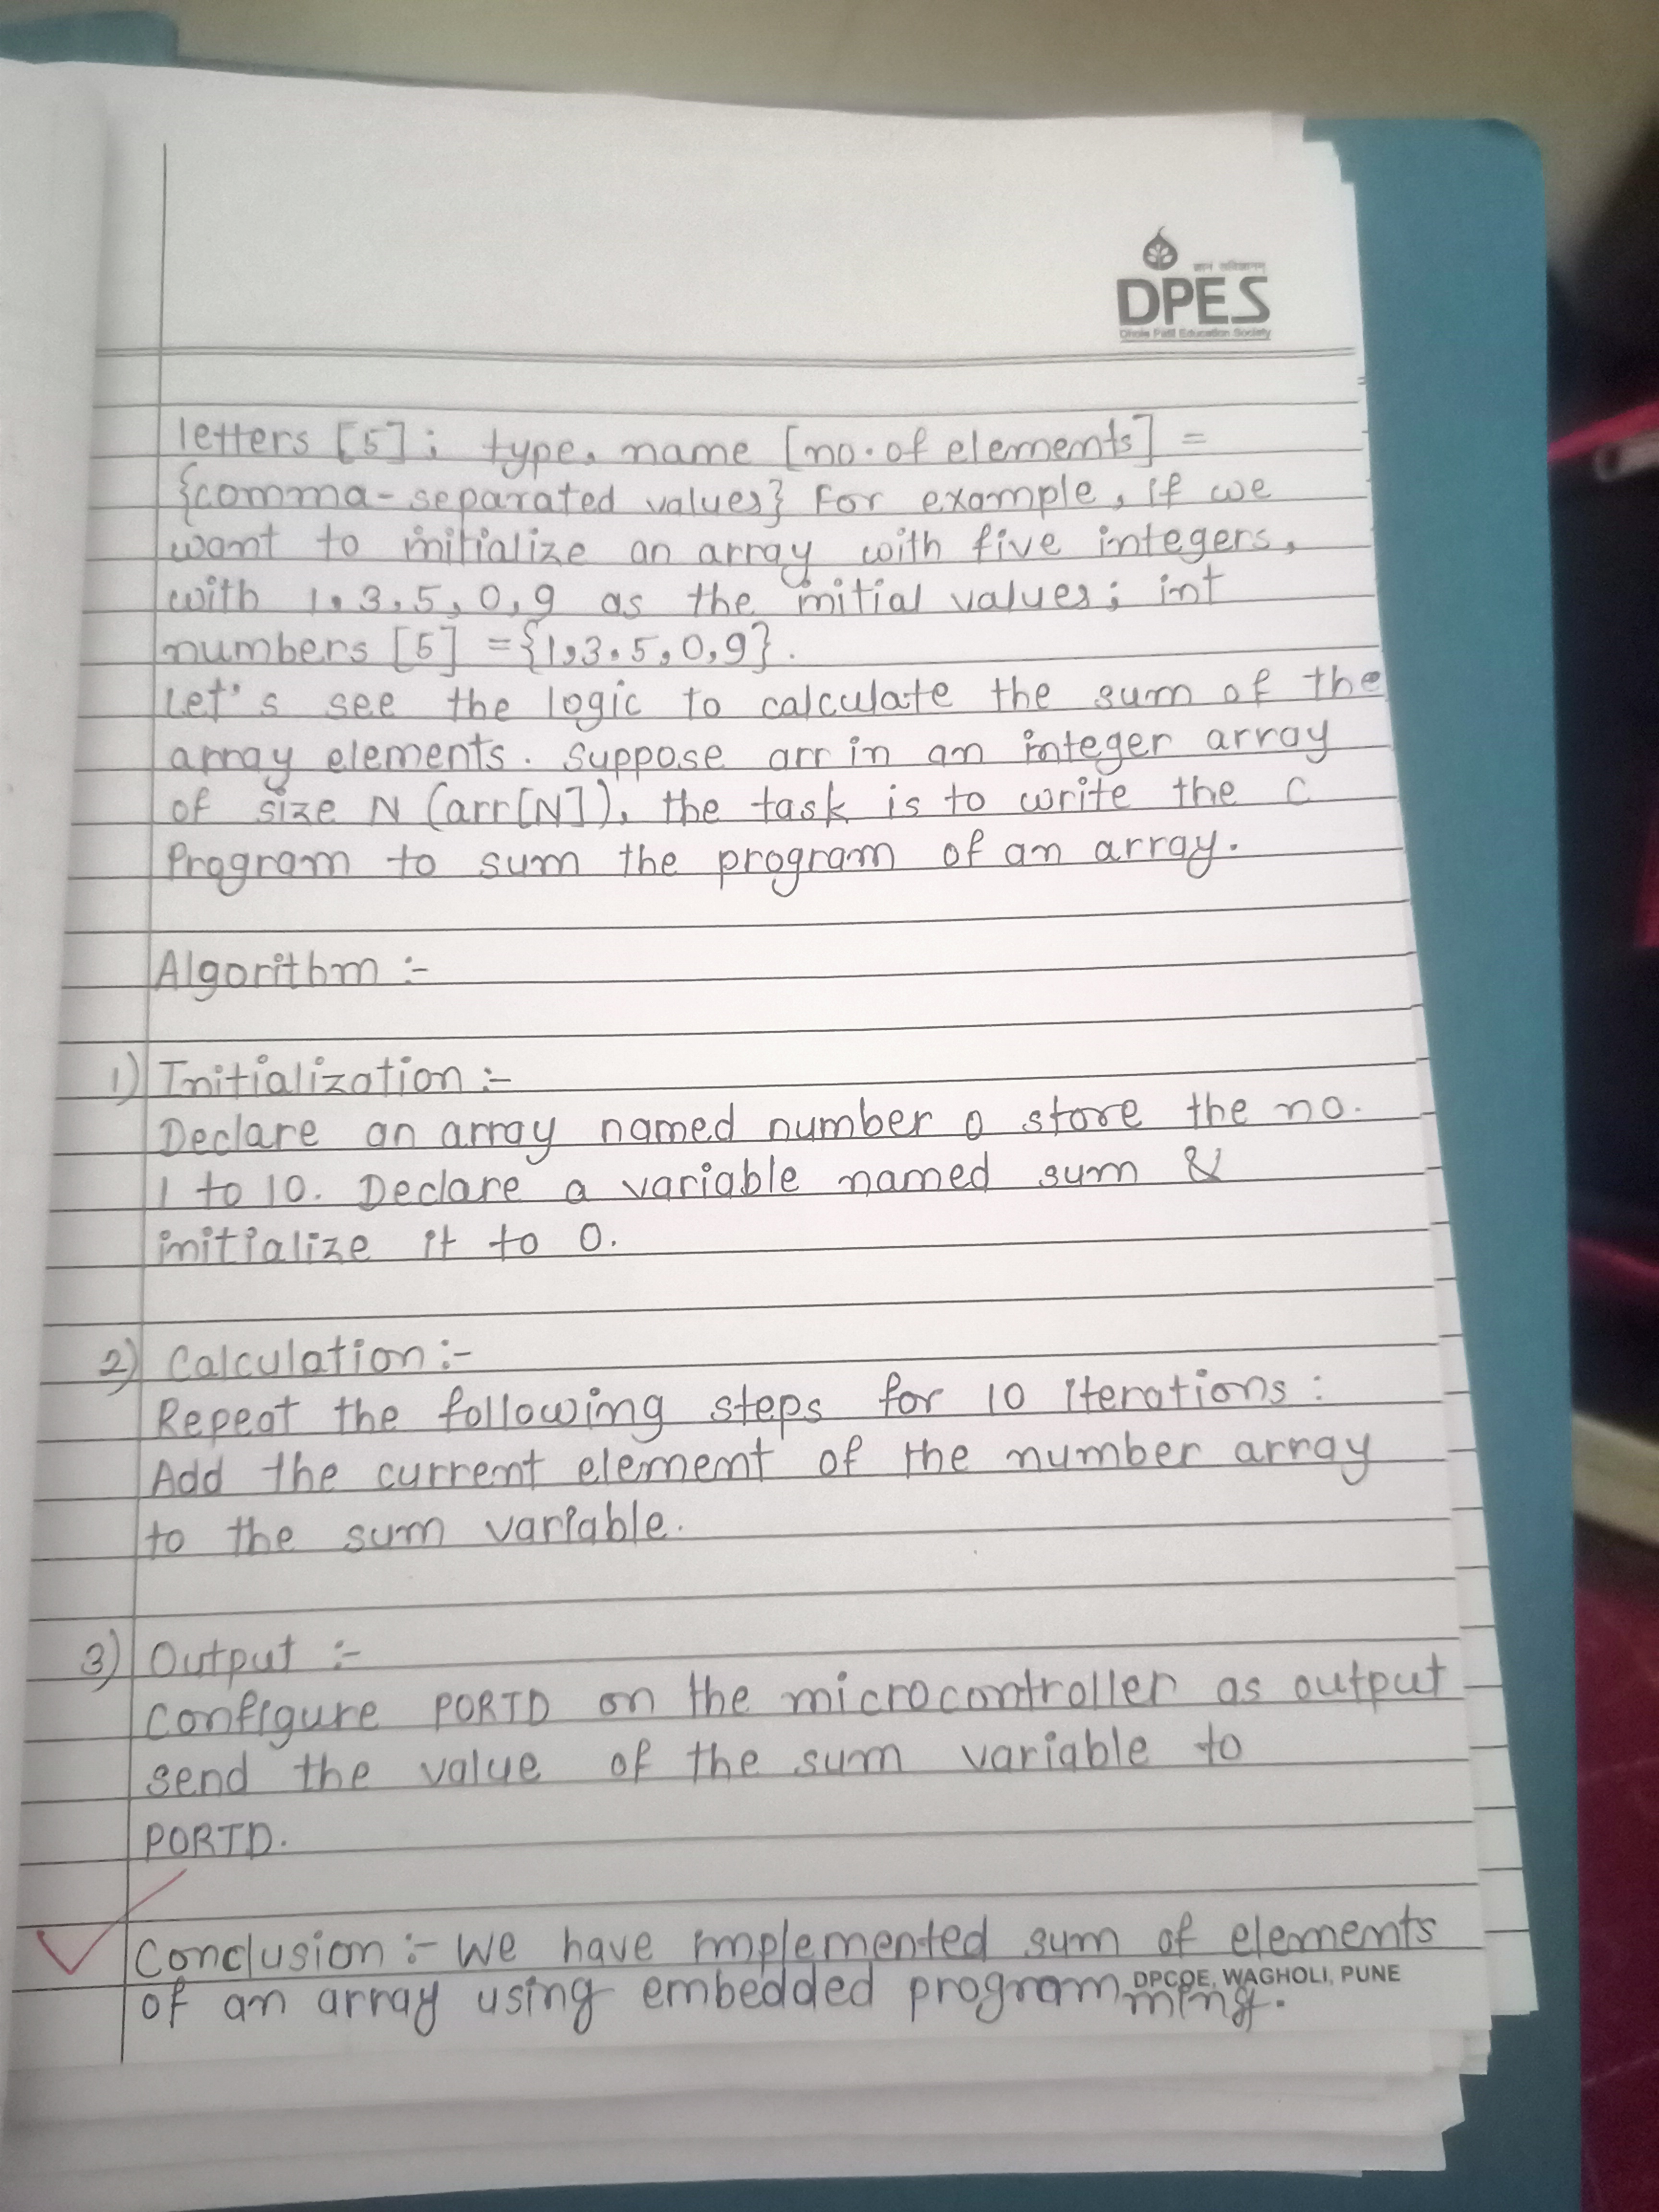 DPES
Dhole Patil Education Society
letters [5]; type, name [no. of elements] =
{comma-separated values} For example, if we
want to initialize an array with five integers,
with 1, 3, 5, 0, 9 as the initial values; int
numbers [5] = {1,3,5,0,9}.
Let's see the logic to calculate the sum of the
array elements. Suppose arr in an integer array
of size N (arr[N]), the task is to write the C
Program to sum the program of an array.
Algorithm :-
1) Initialization :-
Declare an array named number o store the no.
1 to 10. Declare a variable named sum &
initialize it to 0.
2) Calculation :-
Repeat the following steps for 10 iterations :
Add the current element of the number array
to the sum variable.
3) Output :-
Configure PORTD on the microcontroller as output
send the value of the sum variable to
PORTD.
Conclusion :- We have implemented sum of elements
of an array using embedded programming.
DPCOE, WAGHOLI, PUNE